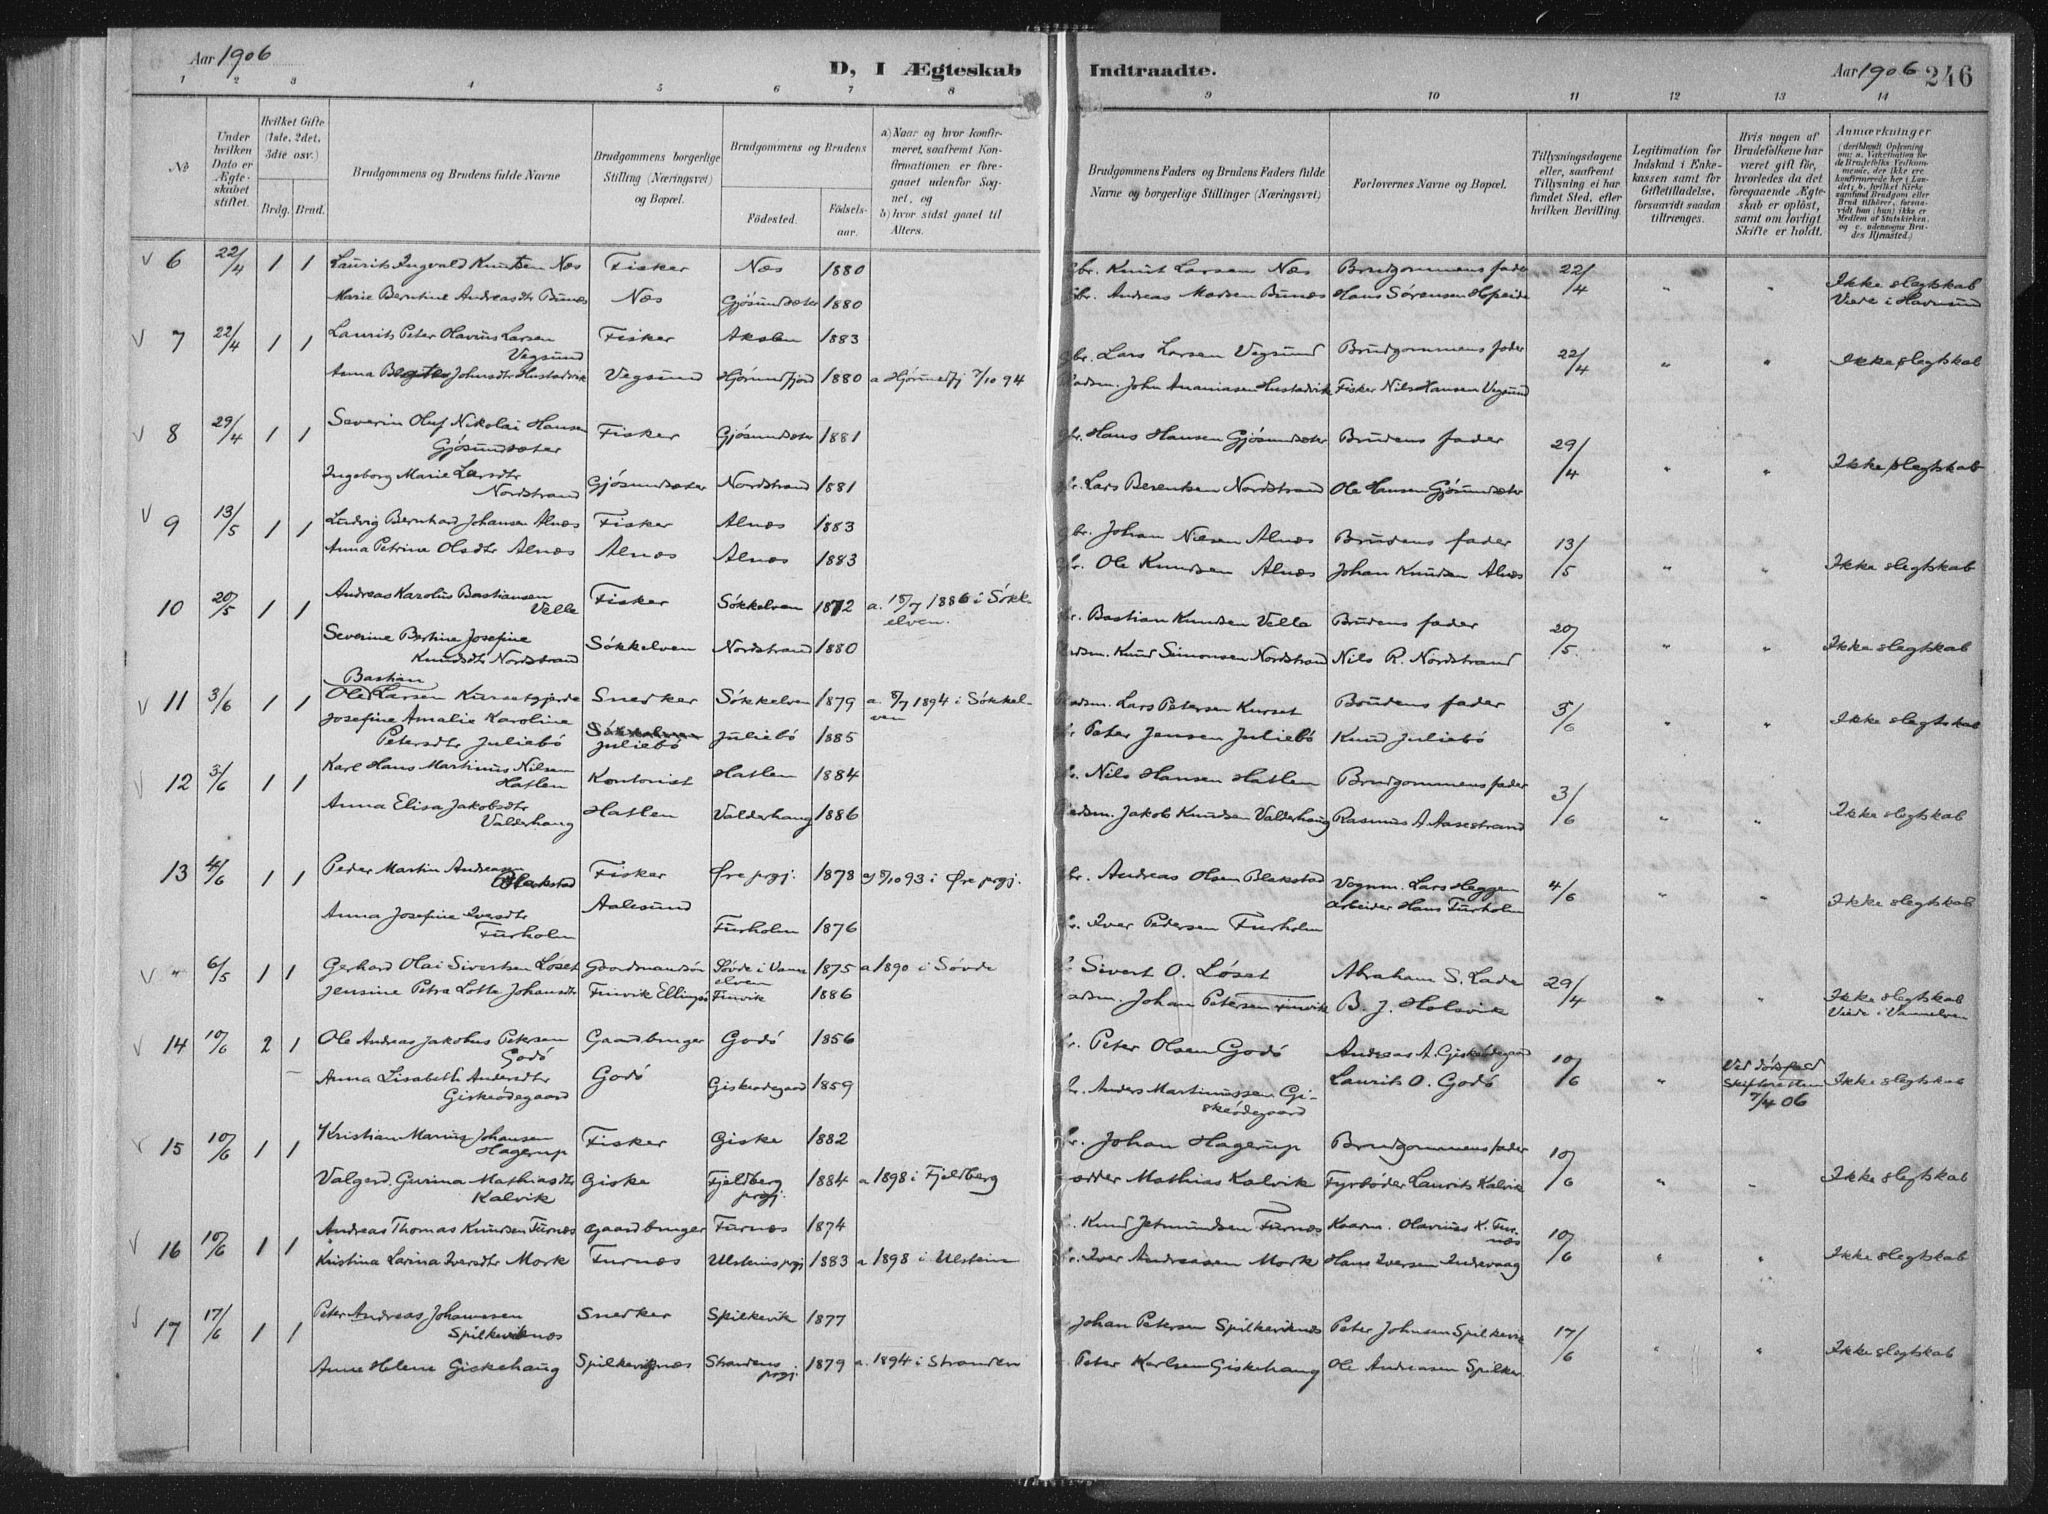 Aar 1906
D, I Ægteskab Indtraadte.
Aar 1906 246
1 2 3 4 5 6 7 8 9 10 11 12 13 14
No
Under hvilken Dato er Ægteskabet stiftet.
Hvilket Gifte (1ste, 2det, 3die osv.)
Brdg. Brud.
Brudgommens og Brudens fulde Navne
Brudgommens borgerlige Stilling (Næringsvei) og Bopæl.
Brudgommens og Brudens
Födested. Födselsaar.
a) Naar og hvor konfirmeret, saafremt Konfirmationen er foregaaet udenfor Sognet, og
b) hvor sidst gaaet til Alters.
Brudgommens Faders og Brudens Faders fulde Navne og borgerlige Stillinger (Næringsvei)
Forlovernes Navne og Bopæl.
Tillysningsdagene eller, saafremt Tillysning ei har fundet Sted, efter hvilken Bevilling.
Legitimation for Indskud i Enkekassen samt for Giftetilladelse, forsaavidt saadan tiltrænges.
Hvis nogen af Brudefolkene har været gift för, hvorledes da det foregaaende Ægteskab er oplöst, samt om lovligt Skifte er holdt.
Anmærkninger
6 22/4 1 1 Laurits Ingvald Knutsen Næs Fisker Næs 1880 Gbr. Knut Larsen Næs Brudgommens fader 22/4 " " Ikke slegtskab
Marie Berntine Andreasdtr Bunæs Næs Gjösundsæter 1880 Gbr. Andreas Madsen Bunæs Hans Sörensen Viede i Havnsund
7 22/4 1 1 Laurits Peter Olavius Larsen Vegsund Fisker Akslen 1883 Gbr. Lars Larsen Vegsund Brudgommens fader 22/4 " " Ikke slegtskab
Anna Johnsdtr Hustadvik Vegsund Hjörundfjord 1880 a Hjörundfj 7/10 94 Husm. John Ananiasen Hustadvik Fisker Nils Hansen Vegsund
8 29/4 1 1 Severin Oluf Nikolai Hansen Gjösundsæter Fisker Gjösundsæter 1881 Gbr. Hans Hansen Gjösundsæter Brudens fader 29/4 " " Ikke slegtskab
Ingeborg Marie Larsdtr Nordstrand Gjösundsæter Nordstrand 1881 Gbr. Lars Berentsen Nordstrand Ole Hansen Gjösundsæter
9 13/5 1 1 Ludvig Bernhard Johansen Alnæs Fisker Alnæs 1883 Gbr. Johan Nilsen Alnæs Brudens fader 13/5 " " Ikke slegtskab
Anna Petrine Olsdtr Alnæs Alnæs Alnæs 1883 Ole Knudsen Alnæs Johan Knudsen Alnæs
10 20/5 1 1 Andreas Karolus Bastiansen Velle Fisker Sökkelven 1872 a. 18/7 1886 i Sökkelven. Bastian Knudsen Velle Brudens fader 20/5 " " Ikke slegtskab
Severine Bertine Josefine Knudsdtr Nordstrand Sökkelven Nordstrand 1880 Husm. Knud Simonsen Nordstrand Nils R. Nordstrand
11 3/6 1 1 Ole Bastian Larsen Kursetgjerde Snedker Sökkelven 1879 a. 8/7 1894 i Sökkelven Lars Petersen Kurset Brudens fader 3/6 " " Ikke slegtskab
Josefine Amalie Karoline Petersdtr Juliebö Sökkelven Juliebö Juliebö 1885 Peter Jensen Juliebö Knud Juliebö
12 3/6 1 1 Karl Hans Martinus Nilsen Hatlen Kontorist Hatlen 1884 Nils Hansen Hatlen Brudgommens fader 3/6 " " Ikke slegtskab
Anna Elisa Jakobsdtr Valderhaug Hatlen Valderhaug 1886 Jakob Knudsen Valderhaug Rasmus A. Aasestrand
13 4/6 1 1 Peder Martin Andreasen Blakstad Fisker Øre prgj. 1878 a) 8/10 93 i Øre prgj. Gbr. Andreas Olsen Blakstad Vognm. Lars Heggen 4/6 " " Ikke slegtskab
Anna Josefine Iversdtr Furholm Aalesund Furholm 1876 Iver Pedersen Furholm Arbeider Hans Furholm
" 6/5 1 1 Gerhard Olai Sivertsen Löset Gaardmandsön Sövde i Vannelven 1875 a 1890 i Sövde Sivert O. Löset Abraham S. Lade 29/4 " " Ikke slegtskab
Jensine Petra Lotte Johansdtr Furvik Ellingsö Furvik 1886 Johan Petersen Furvik B. J. Holsvik Viede i Vannelven
14 10/6 2 1 Ole Andreas Jakobus Petersen Godö Gaardbruger Godö 1856 Peter Olsen Godö Andreas A. Giskeödegaard 10/6 " Ved dödsfald Skifteretten 7/4 06 Ikke slegtskab
Anna Lisabeth Andersdtr Giskeödegaard Godö Giskeödegaard 1859 Anders Martinussen Giskeödegaard Laurits O. Godö
15 10/6 1 1 Kristian Marius Johansen Hagerup Fisker Giske 1882 Johan Hagerup Brudgommens fader 10/6 " " Ikke slegtskab
Valgerd Gurina Mathiasdtr Kalvik Giske Fjeldberg prgj. 1884 a 1898 i Fjeldberg Mathias Kalvik Fyrböder Laurits Kalvik
16 10/6 1 1 Andreas Thomas Knudsen Furnæs Gaardbruger Furnæs 1874 Knud Jetmundsen Furnæs Kaarm. Olavius K. Furnæs 10/6 " " Ikke slegtskab
Kristina Larina Iversdtr Mork Furnæs Ulsteins prgj 1883 a 1898 i Ulstein Iver Andreassen Mork Hans Iversen Indrevaag
17 17/6 1 1 Peter Andreas Johannesen Spilkeviknæs Snedker Spilkevik 1877 Johan Petersen Spilkeviknæs Peter Johnsen Spilkevik 17/6 " " Ikke slegtskab
Anne Helene Giskehaug Spilkeviknæs Strandens prgj. 1879 a. 1894 i Stranden Peter Karlsen Giskehaug Ole Andreasen Spilker.